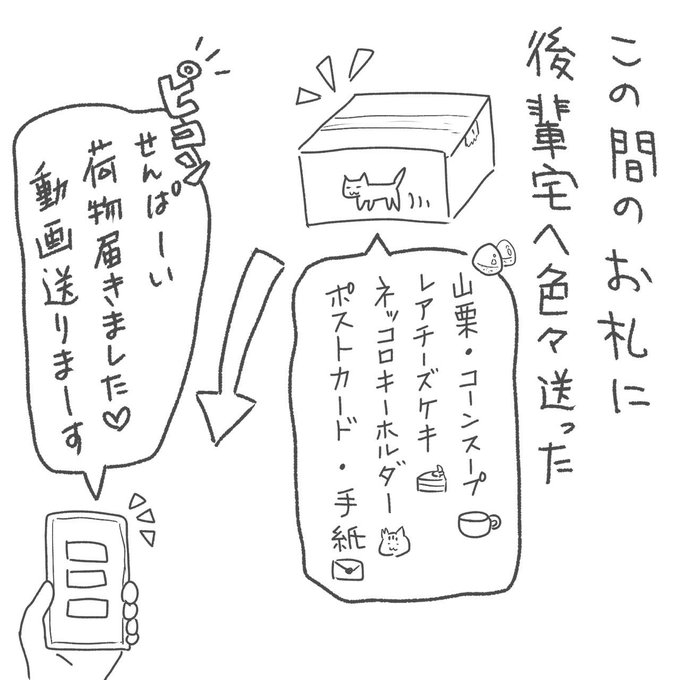 この間のお札に
後輩宅へ色々送った
山栗・コーンスープ
レアチーズケキ
ネッコロキーホルダー
ポストカード・手紙
ピコン
せんぱーい
荷物届きました♡
動画送りまーす